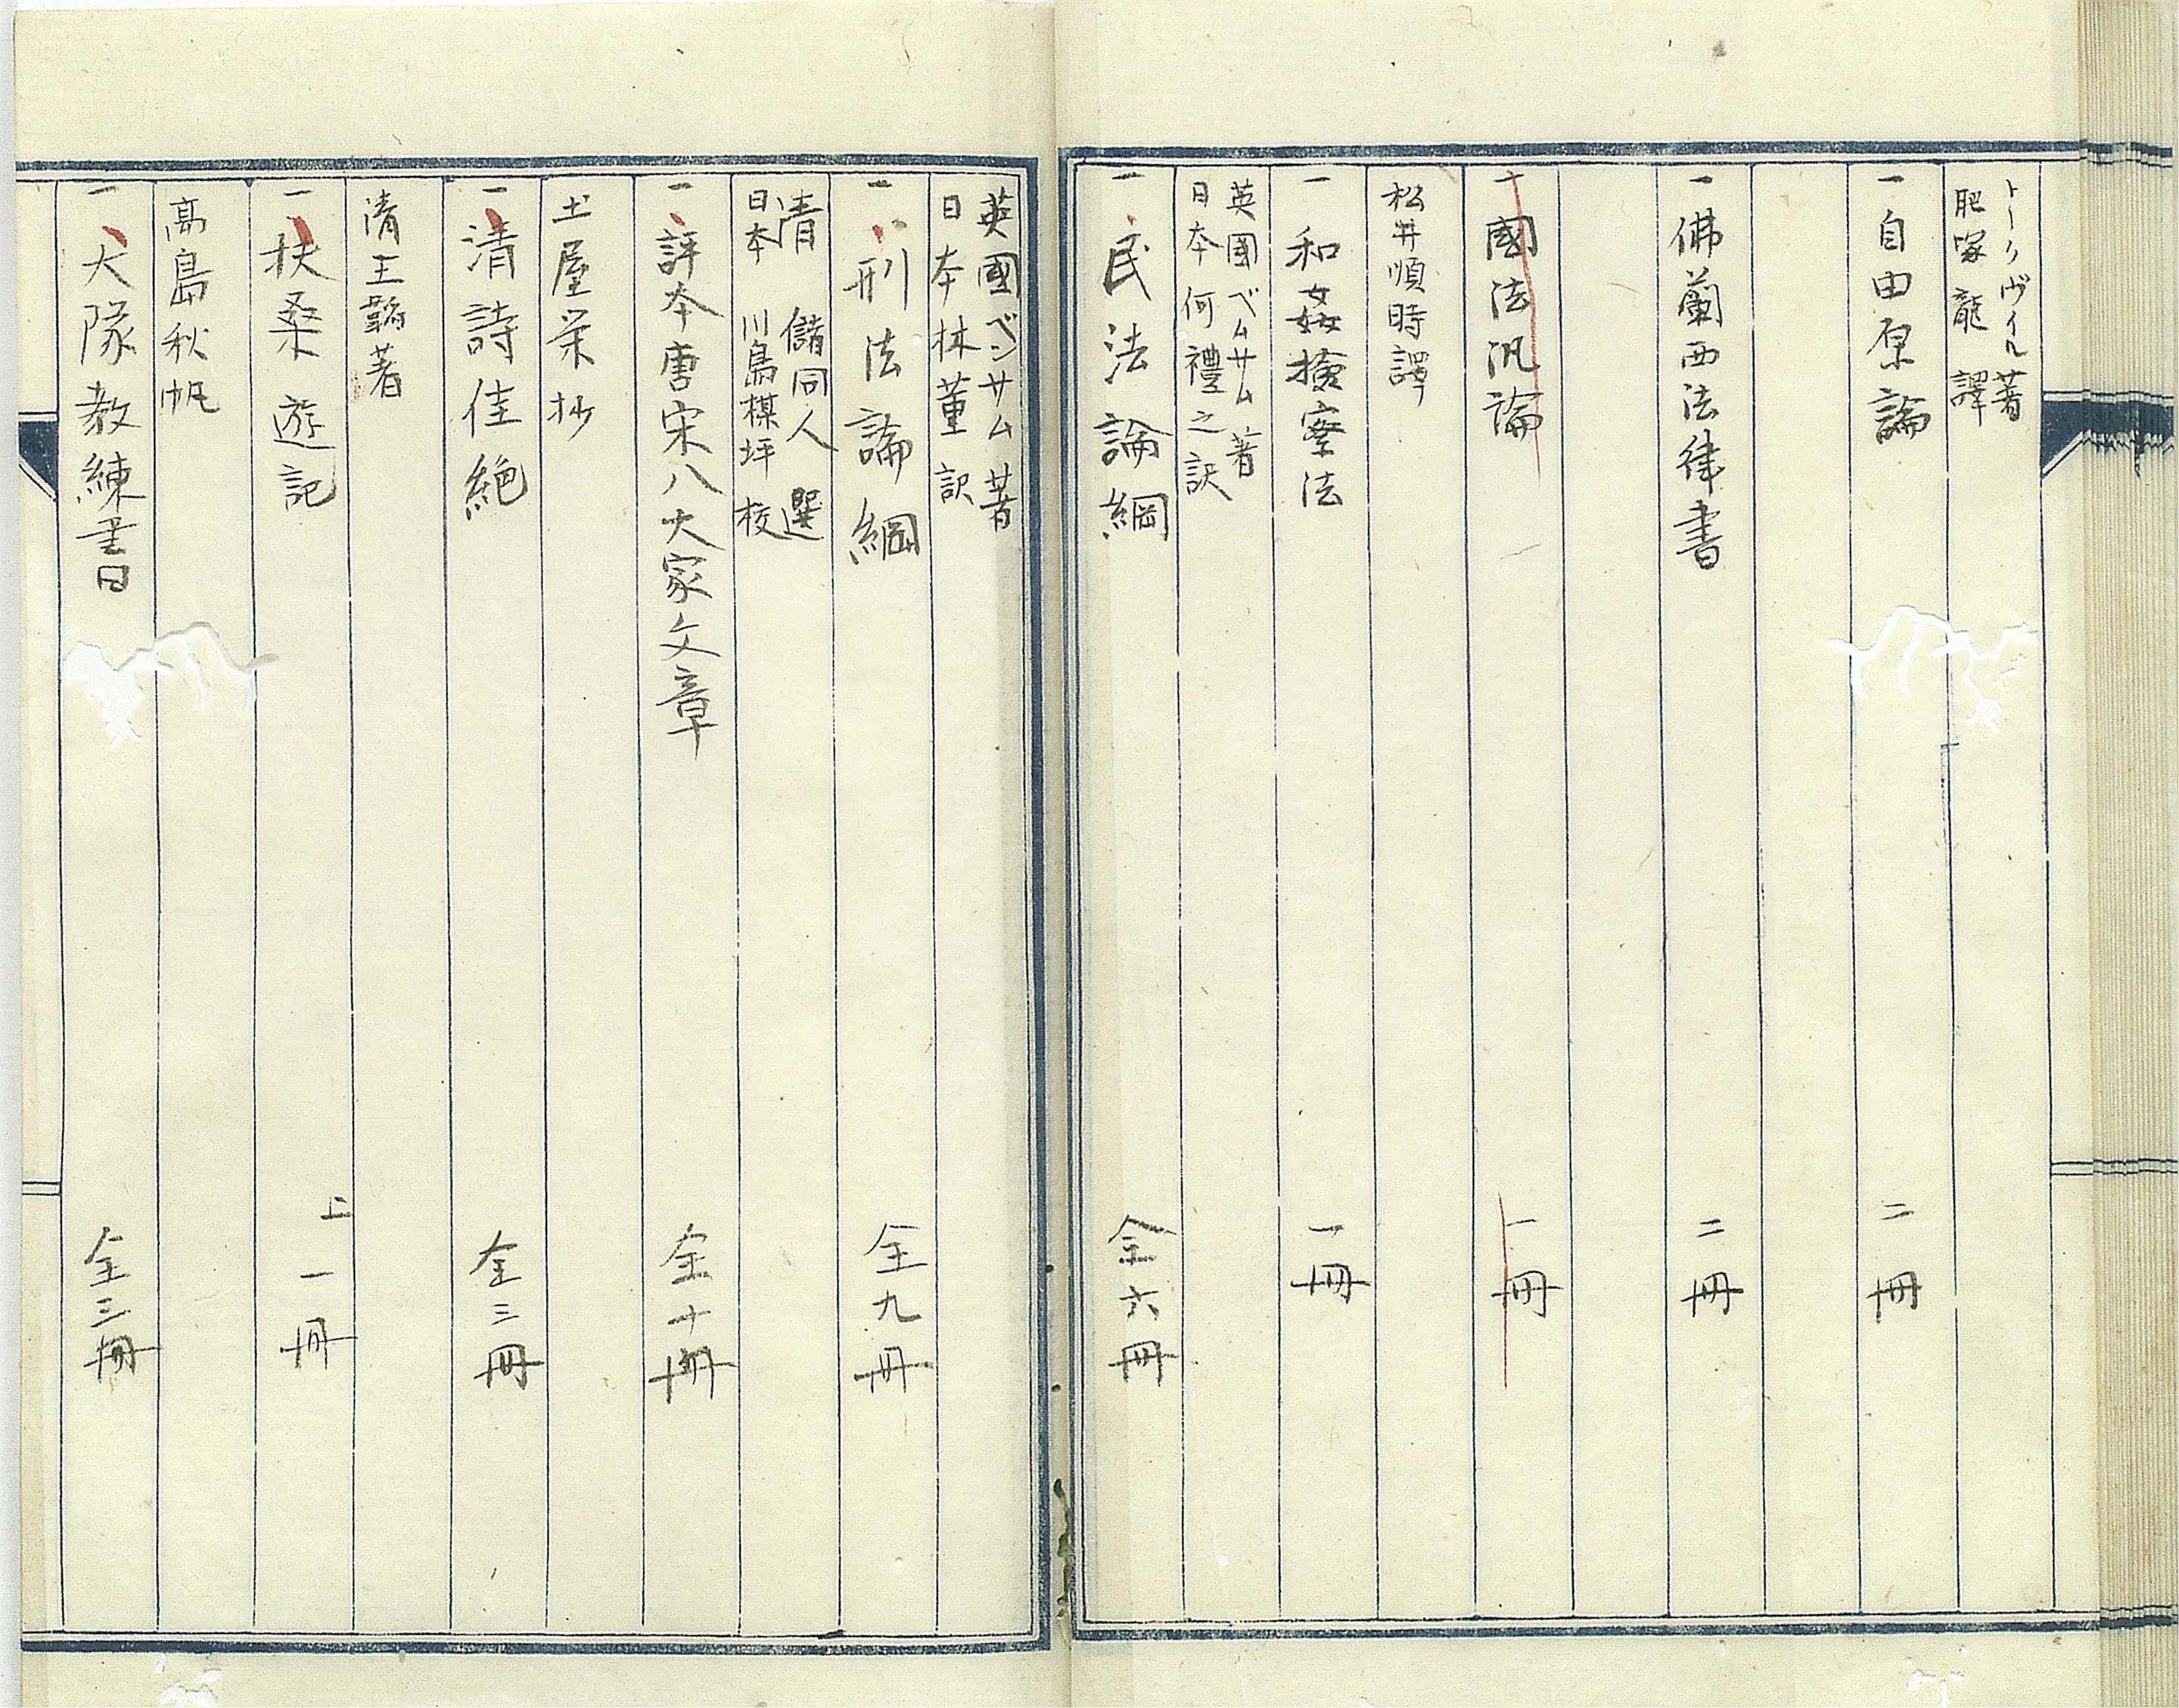 トークヴイル著
肥塚龍譯
一自由原論 二冊
一佛蘭西法律書 二冊
一國法汎論 一冊
松井順時譯
一和姦檢察法 一冊
英國ベムサム著
日本何禮之訳
一民法論綱 全六冊
英國ベンサム著
日本林董訳
一刑法論綱 全九冊
清 儲同人選
日本 川島楳坪校
一評本唐宋八大家文章 全十冊
土屋栄抄
一清詩佳絶 全三冊
清王韜著
一扶桑遊記 上一冊
高島秋帆
一大隊教練書 全三冊